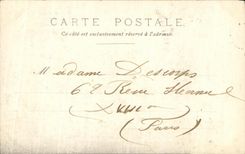 CARTE POSTALE
Ce côté est exclusivement réservé à l'adresse
Madame Descorps
62 Rue
(Paris)